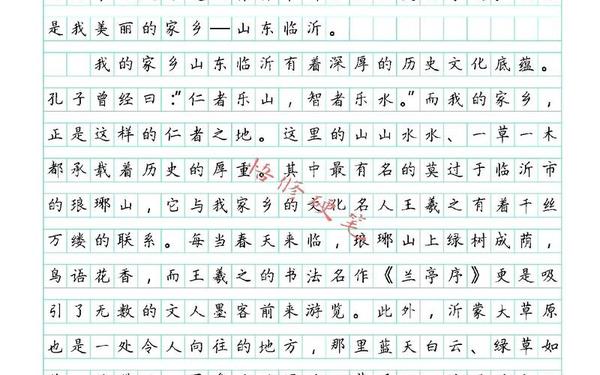 是我美丽的家乡——山东临沂。
我的家乡山东临沂有着深厚的历史文化底蕴。
孔子曾经曰：“仁者乐山，智者乐水。”而我的家乡，
正是这样的仁者之地。这里的山山水水、一草一木
都承载着历史的厚重。其中最有名的莫过于临沂市
的琅琊山，它与我家乡的文化名人王羲之有着千丝
万缕的联系。每当春天来临，琅琊山上绿树成荫，
鸟语花香，而王羲之的书法名作《兰亭序》更是吸
引了无数的文人墨客前来游览。此外，沂蒙大草原
也是一处令人向往的地方，那里蓝天白云、绿草如
悟修硬笔